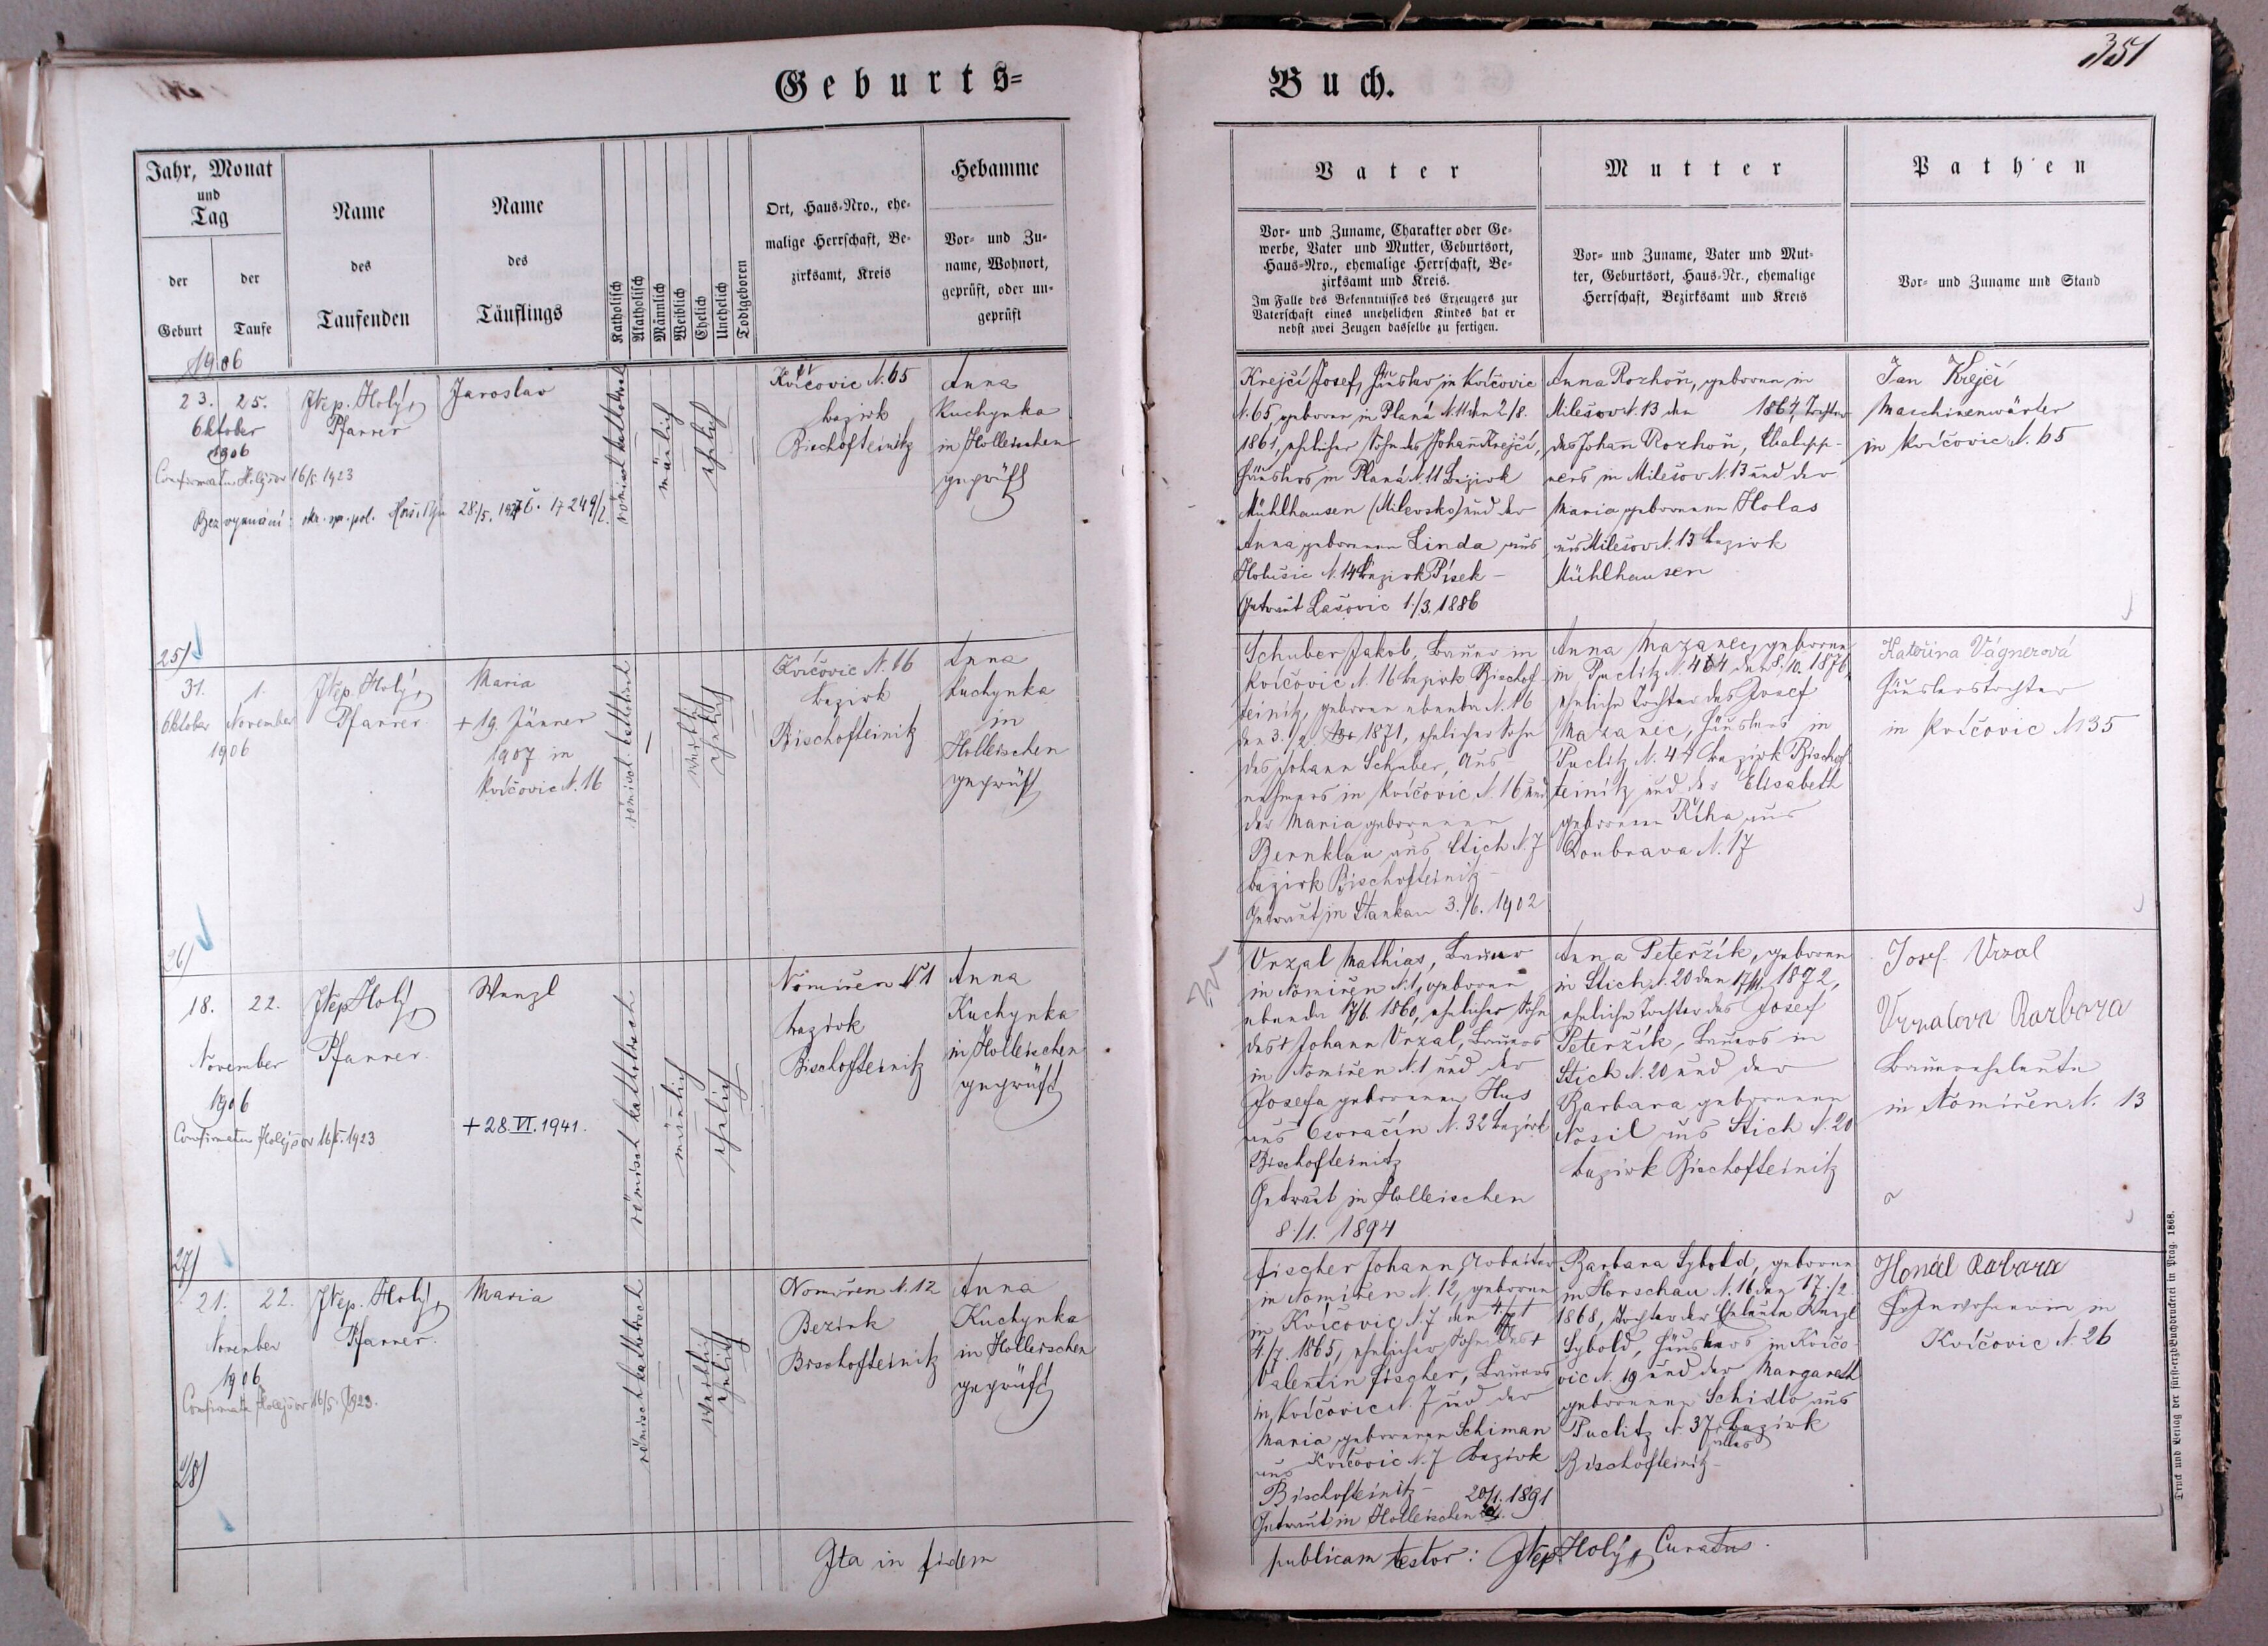 Geburts=
Buch.
351
Jahr, Monat
und
Tag
der
Geburt
der
Taufe
Name
des
Taufenden
Name
des
Täuflings
Katholisch
Akatholisch
Männlich
Weiblich
Ehelich
Unehelich
Todtgeboren
Ort, Haus-Nro., ehe-
malige Herrschaft, Be-
zirksamt, Kreis
Hebamme
Vor- und Zu-
name, Wohnort,
geprüft, oder un-
geprüft
Vater
Vor- und Zuname, Charakter oder Ge-
werbe, Vater und Mutter, Geburtsort,
Haus-Nro., ehemalige Herrschaft, Be-
zirksamt und Kreis.
Im Falle des Bekenntnisses des Erzeugers zur
Vaterschaft eines unehelichen Kindes hat er
nebst zwei Zeugen dasselbe zu fertigen.
Mutter
Vor- und Zuname, Vater und Mut-
ter, Geburtsort, Haus-Nr., ehemalige
Herrschaft, Bezirksamt und Kreis
Pathen
Vor- und Zuname und Stand
1906
23. 25.
Oktober
1906
Confirmatus Holýšov 16/5. 1923
Bez vyznání:
28/5.
25)
JNep. Holý,
Pfarrer
Jaroslav
römisch katholisch
mänlich
ehelich
Kvíčovic N. 65
bezirk
Bischofteinitz
Anna
Kuchynka
in Holleischen
geprüft
Krejčí Josef, Häusler in Kvíčovic
N. 65, geboren in Planá N. 11 den 2/8.
1861, ehelicher Sohn des Johann Krejčí,
Häuslers in Planá N. 11 Bezirk
Mühlhausen (Milevsko) und der
Anna geborenen Linda aus
Holušic N. 14 Bezirk Písek –
Getraut Lašovic 1./3. 1886
Anna Rozhoň, geboren in
Milešov N. 13 den 1864, Tochter
des Johann Rozhoň, Chalupp-
ners in Milešov N. 13 und der
Maria geborenen Holas
aus Milešov N. 13 bezirk
Mühlhausen
Jan Krejčí
Maschinenwärter
in Kvíčovic N. 65
31. 1.
Oktober November
1906
26)
JNep. Holý,
Pfarrer
Maria
+ 19. Jänner
1907 in
Kvíčovic N. 16
römisch katholisch
weiblich
ehelich
Kvíčovic N. 16
bezirk
Bischofteinitz
Anna
Kuchynka
in
Holleischen
geprüft
Schuber Jakob, Bauer in
Kvíčovic N. 16 bezirk Bischof-
teinitz, geboren ebenda N. 16
den 3./2. 1871, ehelicher Sohn
des Johann Schuber, Aus-
nehmers in Kvíčovic N. 16 und
der Maria geborenen
Bernklau aus Stich N. 7
bezirk Bischofteinitz –
Getraut in Stankau 3./6. 1902
Anna Mazanec, geboren
in Puclitz N. 44 den 8. 10. 1876,
eheliche Tochter des Josef
Mazanec, Häuslers in
Puclitz N. 44 bezirk Bischof-
teinitz und der Elisabeth
geborenen Říha aus
Doubrava N. 17
Kateřina Vágnerová
Häuslerstochter
in Kvíčovic N 35
18. 22.
November
1906
Confirmatus Holýšov 16/5. 1923
27)
JNep Holý,
Pfarrer
Wenzl
+ 28. VI. 1941.
römisch katholisch
mänlich
ehelich
Nomiřen N 1
bezirk
Bischofteinitz
Anna
Kuchynka
in Holleischen
geprüft
Vrzal Mathias, Bauer
in Nomiřen N. 1, geboren
ebenda 17/6. 1860, ehelicher Sohn
des + Johann Vrzal, Bauers
in Nomiřen N. 1 und der
Josefa geborenen Hus
aus Osvračín N. 32 bezirk
Bischofteinitz
Getraut in Holleischen
8./1. 1894
Anna Peteržík, geboren
in Stich N. 20 den 17/11. 1872,
eheliche Tochter des Josef
Peteržík, Bauers in
Stich N. 20 und der
Barbara geborenen
Nosil aus Stich N. 20
bezirk Bischofteinitz
Josef Vrzal
Vrzalova Barbora
Bauerseheleute
in Nomiřen N. 13
21. 22.
November
1906
Confirmata Holýšov 16/5. 1923.
28)
JNep. Holý,
Pfarrer.
Maria
römisch katholisch
weiblich
ehelich
Nomiřen N. 12
Bezirk
Bischofteinitz
Anna
Kuchynka
in Holleischen
geprüft
Fischer Johann Arbeiter
in Nomiřen N. 12, geboren
in Kvíčovic N. 7 den
4./7. 1865, ehelicher Sohn des +
Valentin Fischer, Bauers
in Kvíčovic N. 7 und der
Maria geborenen Schiman
aus Kvíčovic N. 7 bezirk
Bischofteinitz –
Getraut in Holleischen 20/1. 1891
Barbara Sybold, geboren
in Horschau N. 16 den 17./2.
1868, Tochter der Eheleute Wenzl
Sybold, Häuslers in Kvíčo-
vic N. 19 und der Margareth
geborenen Schidlo aus
Puclitz N. 37 bezirk
Bischofteinitz –
Honál Barbara
Inwohnerin in
Kvíčovic N. 26
Ita in fidem
publicam testor: JNep. Holý, Curatus.
Druck und Verlag der fürst-erzb. Buchdruckerei in Prag. 1868.